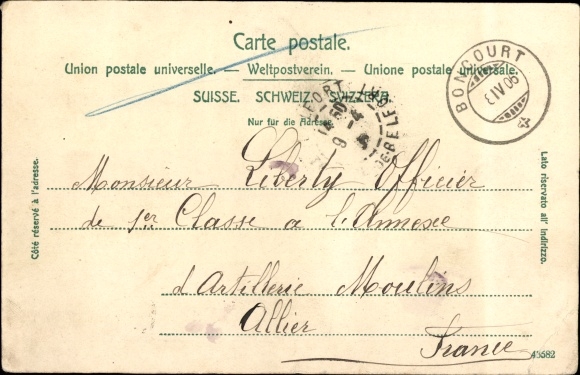 Carte postale.
Union postale universelle. — Weltpostverein. — Unione postale universale.
SUISSE. SCHWEIZ. SVIZZERA.
Nur für die Adresse.
BONCOURT
Côté réservé à l'adresse.
Lato riservato all' indirizzo.
Monsieur Liberty Officier
de 1er Classe a l'Annexe
d'Artillerie Moulins
Allier
France
43582